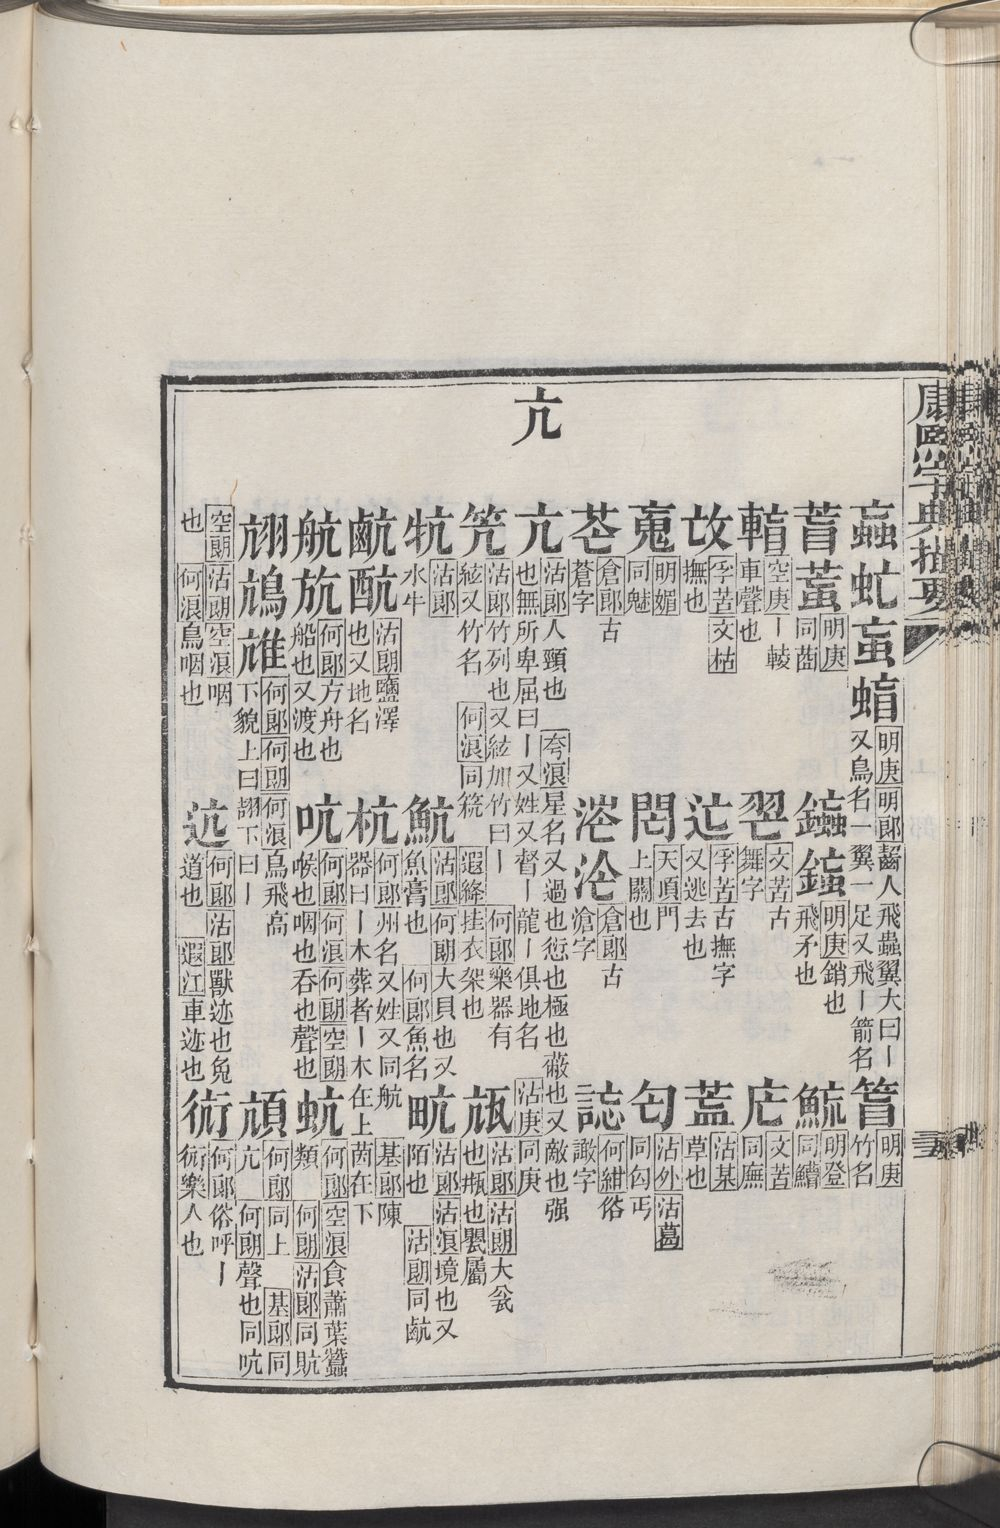 康熙字典撮要
亢
蝱虻蝱蝐 明庚 明郎 齧人飛蟲翼大曰丨又鳥名一翼一足又飛丨箭名
䈍 明庚 竹名
莔𦿏 明庚 同茵
飛矛也 明庚 銷也
明登 同鱛
空庚 丨輘車聲也
翌 文苦 古舞字
庀 文苦 同廡
㚢 孚苦 文枯 撫也
辷 孚苦 古撫字又逃去也
蓋 沽外 沽葛 沽基 草也
䰨 明媚 同魅
閌 天項 門上關也
匄 同匃丐
𦭸 倉郎 古蒼字
滄 倉郎 古滄字
誌 何紺 俗譀字
亢 沽郎 人頸也 夸浪 星名又過也愆也極也蔽也又敵也强也無所卑屈曰丨又姓又督丨龍丨俱地名 沽庚 同庚
笐 沽郎 竹列也又絃加竹曰丨 何郎 樂器有絃又竹名 何浪 同𥮕 遐絳 挂衣架也
瓨 沽郎 沽朗 大瓮也瓶也甖屬
牨 沽郎 水牛
魧 沽郎 何朗 大貝也又魚膏也 何郎 魚名
畖 沽郎 沽浪 境也又陌也 沽朗 同䴚
䴚酛 沽朗 鹽澤也又地名
杭 何郎 州名又姓又同航器曰丨木葬者丨木在上茵在下 基郎 陳
航㫄 何郎 方舟也船也又渡也
吭 何郎 何浪 何朗 空朗 喉也咽也吞也聲也
蚢 何郎 空浪 食蕭葉蠶類 何朗 沽郎 同貥
翃鴋𨾔 何郎 何朗 何浪 鳥飛高下貌上曰翓下曰丨
頏 何郎 同上 基郎 同亢 何朗 聲也同吭
空朗 沽朗 空浪 咽也 何浪 鳥咽也
迒 何郎 沽郎 獸迹也兔道也 遐江 車迹也
䘕 何郎 俗呼丨䘕樂人也